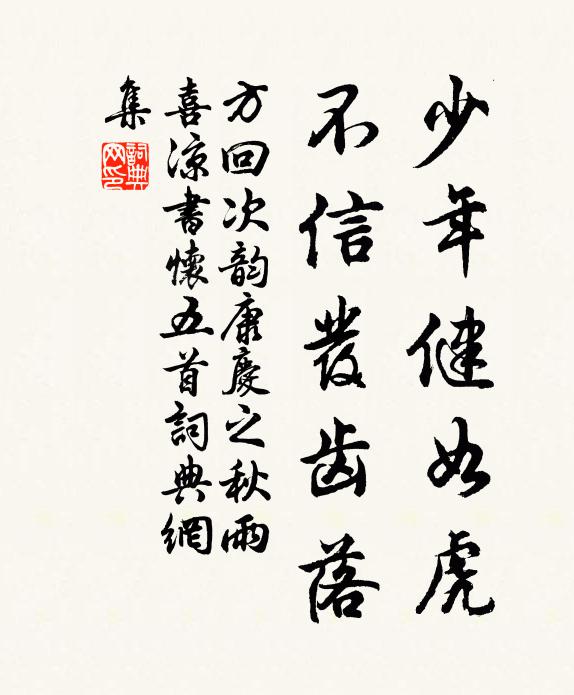 少年健如虎
不信發齿落
方回次韵康慶之秋雨
喜凉書懷五首詞典網
集
詞典網印